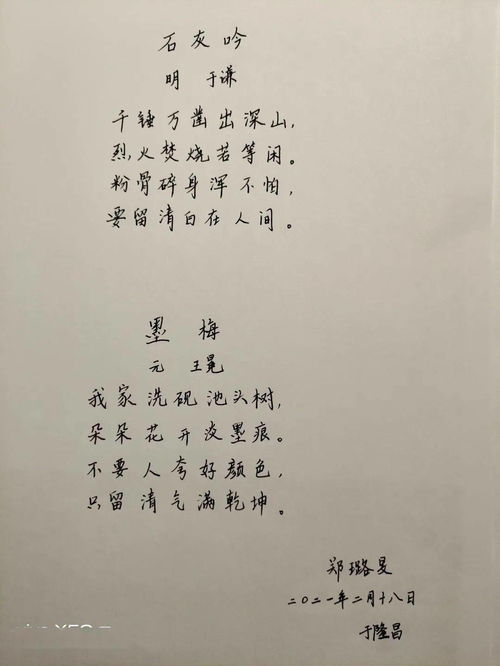 石灰吟
明 于谦
千锤万凿出深山，
烈火焚烧若等闲。
粉骨碎身浑不怕，
要留清白在人间。
墨梅
元 王冕
我家洗砚池头树，
朵朵花开淡墨痕。
不要人夸好颜色，
只留清气满乾坤。
郑璐旻
二〇二一年二月十八日
于隆昌